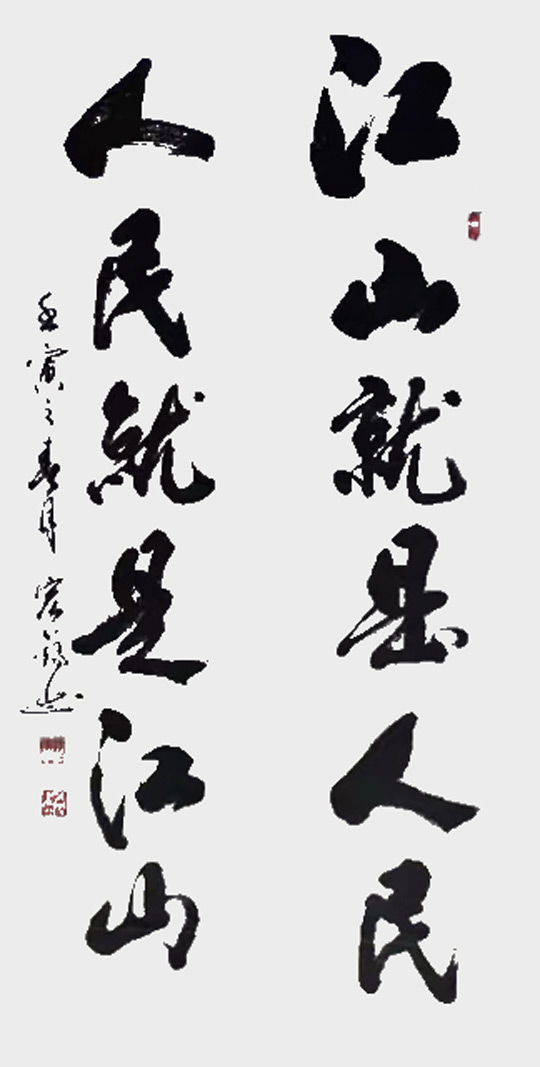 江山就是人民
人民就是江山
壬寅之春月